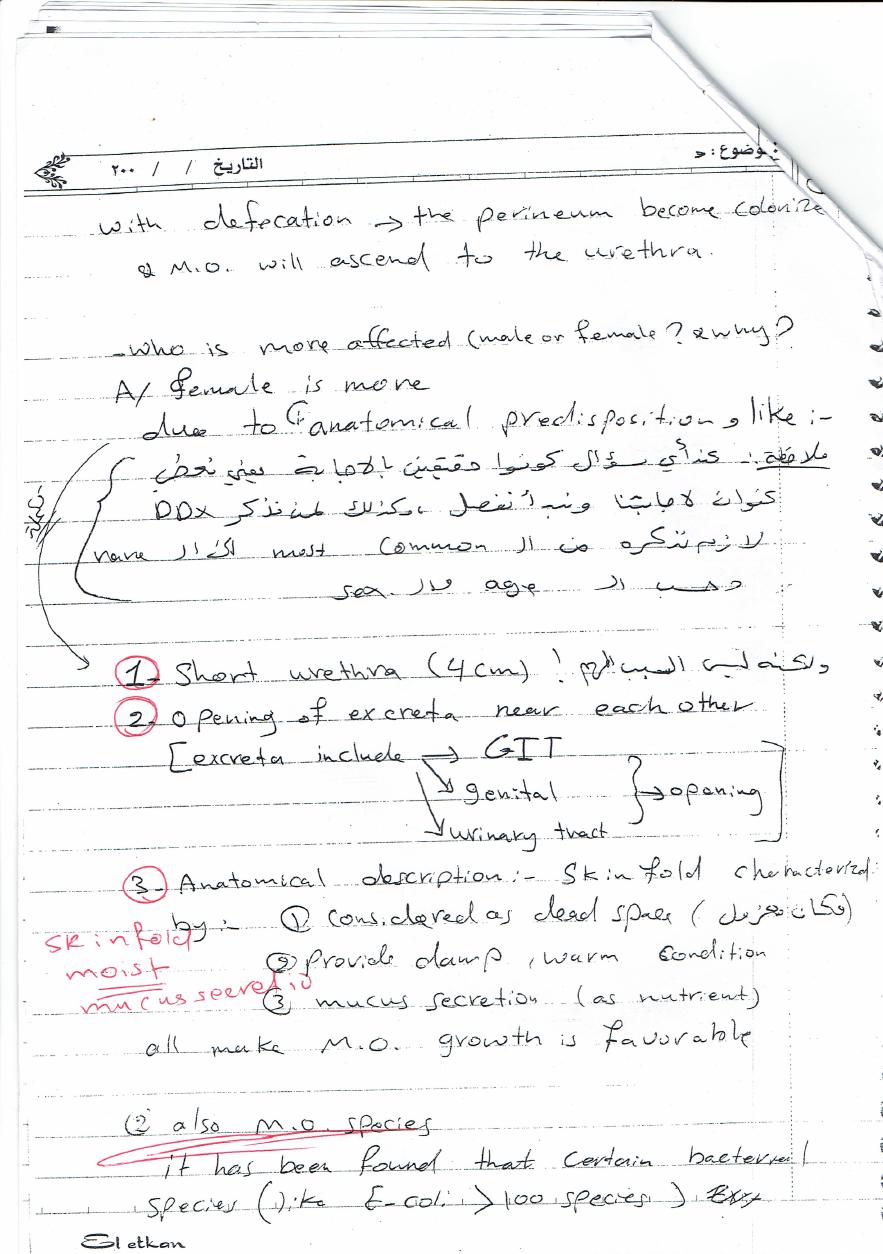 التاريخ / / ٢٠٠
with defecation → the perineum become colonize
& M.O. will ascend to the urethra.
- Who is more affected (male or female? & why?
A/ female is more
due to ① anatomical predisposition, like :-
ملاحظة :- عند أي سؤال كونوا دقيقين بالاجابة يعني نعطي
عنوان لاجابتنا ونبدأ نفصل، وكذلك لمن نذكر DDx
لازم نذكره من ال most common الى ال rare
وحسب ال age وال sex.
1- Short urethra (4cm) ! ولكنه ليس السبب المهم
2- Opening of excreta near each other
[excreta include → GIT
↘ genital } → opening ]
↘ urinary tract
3- Anatomical description :- Skin fold characterized
by :- ① considered as dead space (مكان معزول)
② provide damp, warm condition
③ mucus secretion (as nutrient)
skin fold
moist
mucus secretio
all make M.O. growth is favorable
(2 also M.O. species
it has been found that certain bacterial
species (like E-coli > 100 species)
El etkan